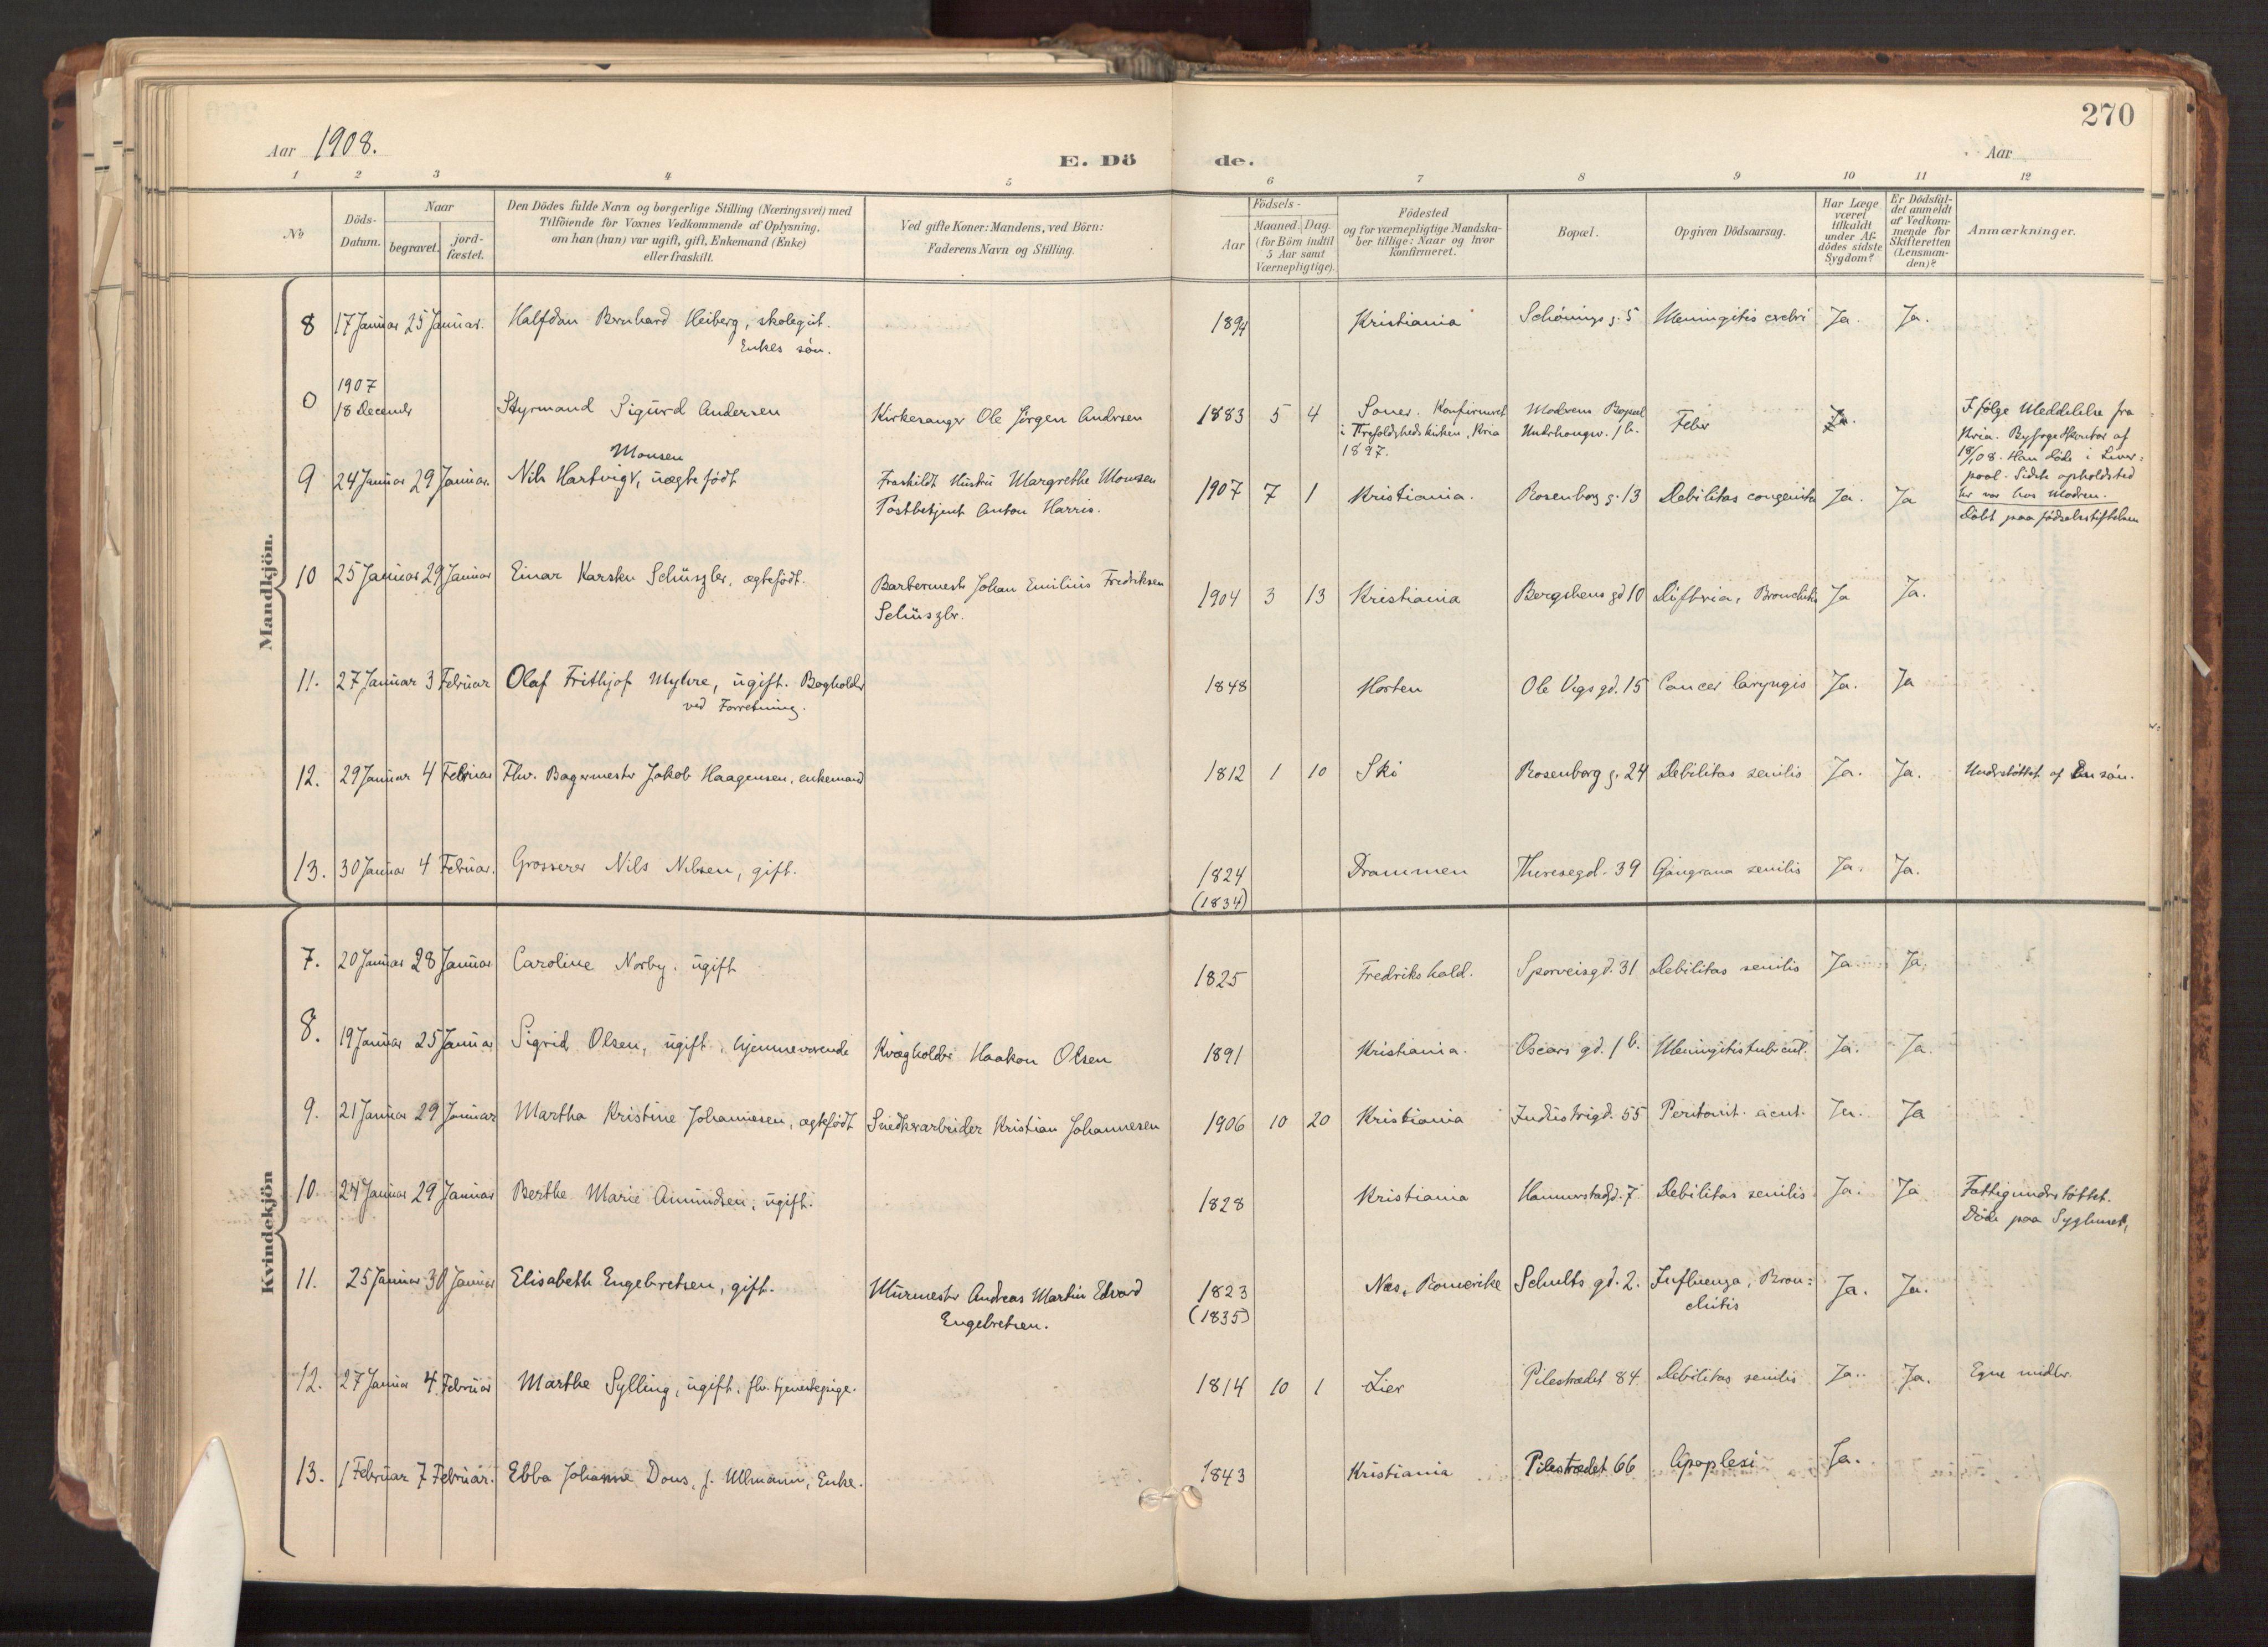 270
Aar 1908.
E. Dö de.
Aar
1 2 3 4 5 6 7 8 9 10 11 12
No
Döds-
Datum.
Naar
begravet.
jord-
fæstet.
Den Dödes fulde Navn og borgerlige Stilling (Næringsvei) med
Tilföiende for Voxnes Vedkommende af Oplysning,
om han (hun) var ugift, gift, Enkemand (Enke)
eller fraskilt.
Ved gifte Koner: Mandens, ved Börn:
Faderens Navn og Stilling.
Födsels-
Aar
Maaned. Dag.
(for Börn indtil
5 Aar samt
Værnepligtige).
Födested
og for værnepligtige Mandska-
ber tillige: Naar og hvor
konfirmeret.
Bopæl.
Opgiven Dödsaarsag.
Har Læge
været
tilkaldt
under Af-
dödes sidste
Sygdom?
Er Dödsfal-
det anmeldt
af Vedkom-
mende for
Skifteretten
(Lensman-
den)?
Anmærkninger.
Mandkjön.
8 17 Januar 25 Januar. Halfdan Bernhard Heiberg, skolegut. 1894 Kristiania Schønings g. 5 Meningitis cerebri Ja. Ja.
Enkes søn.
1907
0 18 December Styrmand Sigurd Andersen Kirkesanger Ole Jørgen Andersen 1883 5 4 Soner. Konfirmeret Moderens Bopæl Feber Ja. Ifølge Meddelelse fra
i Trefoldighedskirken, Kria Underhaugsv. 1 b. Kria. Byfogedkontor af
1897. 18/1 08. Han døde i Liver-
pool. Sidste opholdsted
her var hos Modren.
Monsen
9 24 Januar 29 Januar. Nils Hartvig v, uægte født Fraskildt Hustru Margrethe Monsen 1907 7 1 Kristiania. Rosenborg g. 13 Debilitas congenita Ja. Ja
Postbetjent Anton Harris. Døbt paa fødselsstiftelsen
10 25 Januar 29 Januar Einar Karsten Schüszler, ægtefødt. Barbermester Johan Emilius Fredriksen 1904 3 13 Kristiania Bergsliens gd 10 Difteria, Bronchitis Ja Ja.
Schüszler.
11. 27 Januar 3 Februar Olaf Frithjof Myhre, ugift. Bogholder 1848 Horten Ole Vigs gd. 15 Cancer laryngis Ja. Ja
ved Forretning.
12. 29 Januar 4 Februar Fhv. Bagermester Jakob Haagensen, enkemand 1812 1 10 Ski Rosenborg g. 24 Debilitas senilis Ja. Ja. Understøttet af en søn.
13. 30 Januar 4 Februar. Grosserer Nils Nilsen, gift. 1824 Drammen Theresegd. 39 Gangræna senilis Ja. Ja.
(1834)
Kvindekjön
7. 20 Januar 28 Januar Caroline Norby. ugift 1825 Fredrikshald. Sporveisgd. 31 Debilitas senilis Ja Ja,
8. 19 Januar 25 Januar Sigrid Olsen, ugift, hjemmeværende Kvægholder Haakon Olsen 1891 Kristiania. Oscars gd. 1 b. Meningitis tubercul. Ja. Ja.
9. 21 Januar 29 Januar Martha Kristine Johannesen, ægtefødt Snedkerarbeider Kristian Johannesen 1906 10 20 Kristiania Industrigd. 55 Peritonit. acut. Ja. Ja
10. 24 Januar 29 Januar Berthe Marie Amundsen, ugift. 1828 Kristiania Hammerstadgd. 7 Debilitas senilis Ja. Ja Fattigunderstøttet.
Døde paa Sygehuset,
11. 25 Januar 30 Januar Elisabeth Engebretsen, gift. Murmester Andreas Martin Edvard 1823 Nes, Romerike Schults gd. 2. Influenza, Bron-
Engebretsen. (1835) chitis Ja. Ja.
12. 27 Januar 4 Februar Marthe Sylling, ugift, fhv. tjenestepige. 1814 10 1 Lier Pilestrædet 84. Debilitas senilis Ja. Ja. Egne midler.
13. 1 Februar 7 Februar. Ebba Johanne Dons, f. Ullmann, Enke. 1843 Kristiania Pilestrædet 66 Apoplexi Ja.